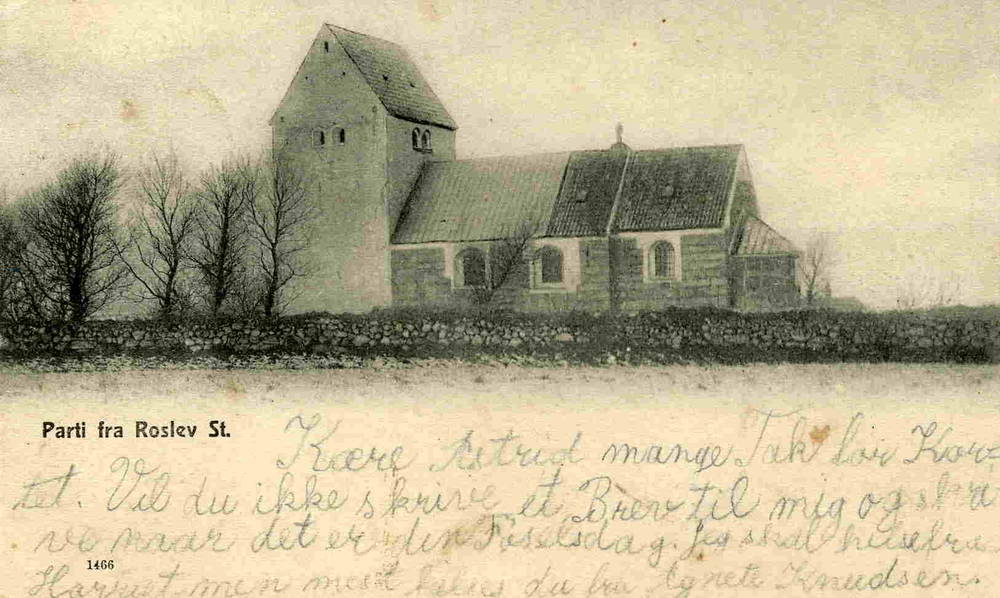 Parti fra Roslev St.
Kære Astrid mange Tak for Kor=
tet. Vil du ikke skrive et Brev til mig og skri
ve naar det er din Føselsdag. Jeg skal hilse fra
1466
Harriet men mest hilses du fra Agnete Knudsen.